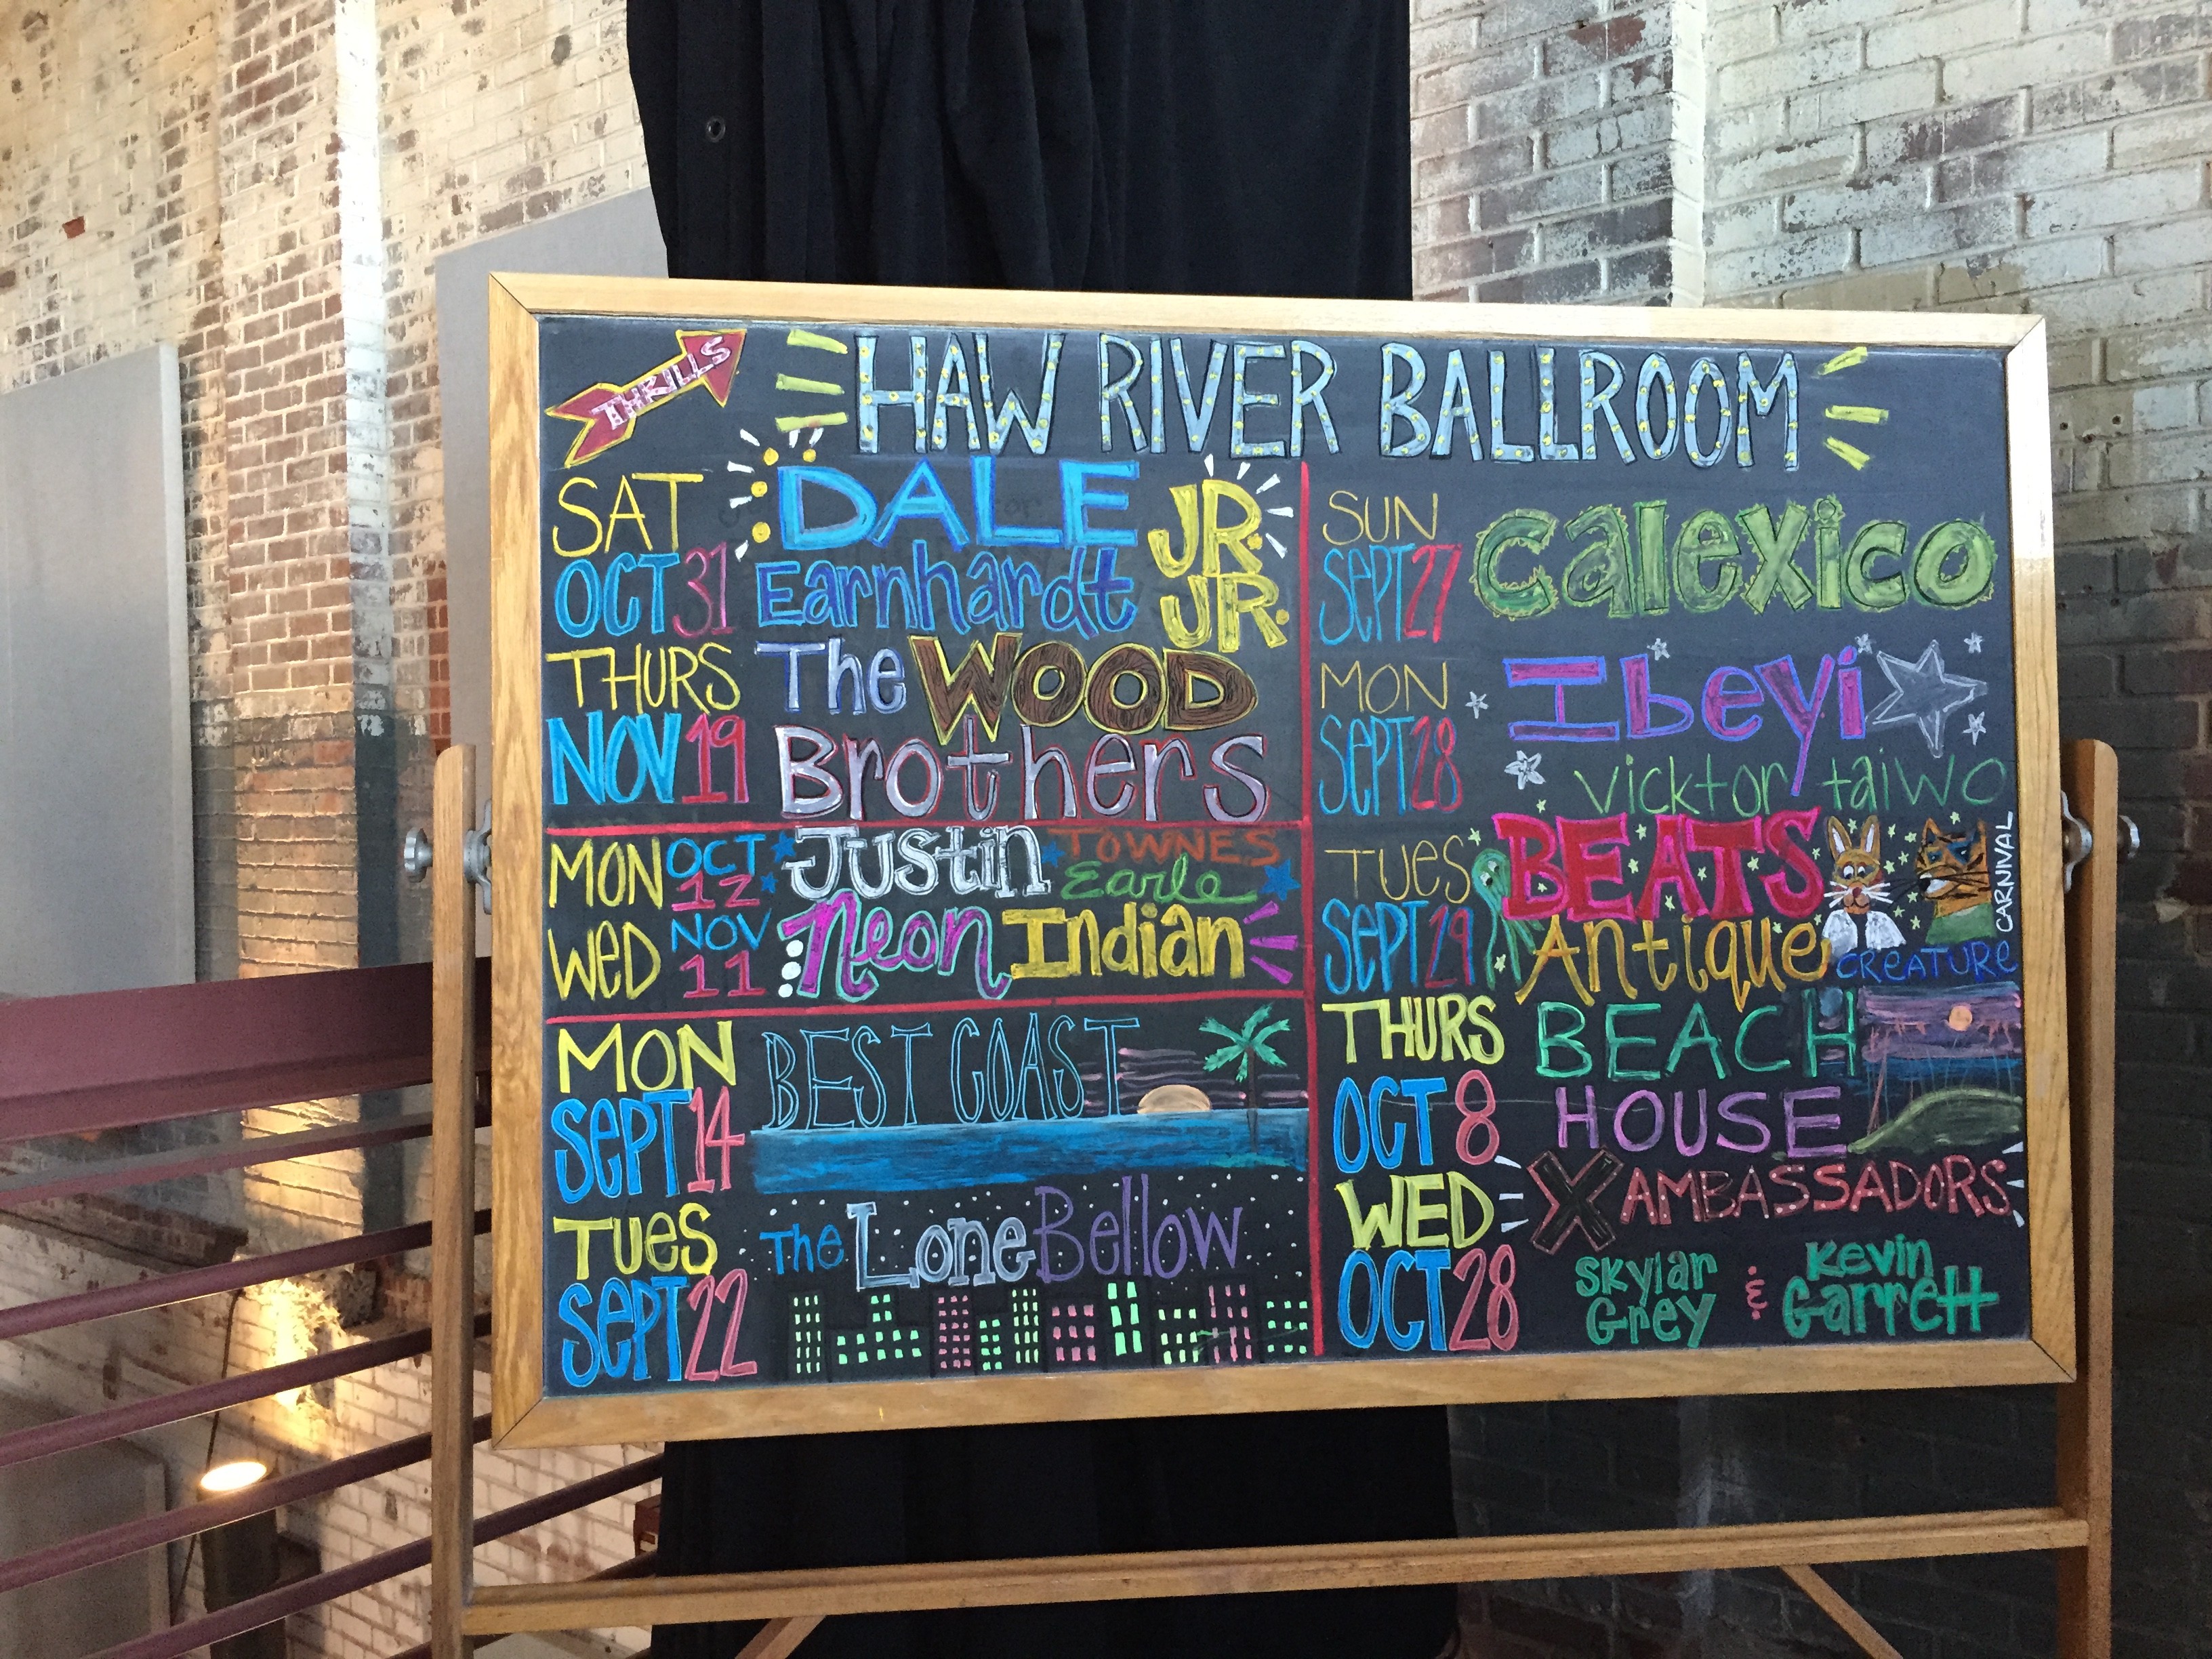 THRILLS
HAW RIVER BALLROOM
SAT
OCT 31
DALE
Earnhardt
JR.
JR.
THURS
NOV 19
The WOOD
Brothers
MON OCT 12
Justin TOWNES
Earle
WED NOV 11
Neon Indian
MON
SEPT 14
BEST COAST
TUES
SEPT 22
The Lone Bellow
SUN
SEPT 27
Calexico
MON
SEPT 28
Ibeyi
vicktor taiwo
TUES
SEPT 29
BEATS
Antique
CREATURE
CARNIVAL
THURS
OCT 8
BEACH
HOUSE
WED
OCT 28
X AMBASSADORS
Skylar
Grey
&
Kevin
Garrett